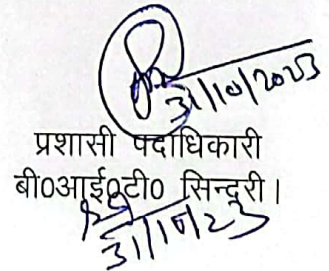 31/10/2023
प्रशासी पदाधिकारी
बी०आई०टी० सिन्दरी।
31/10/23